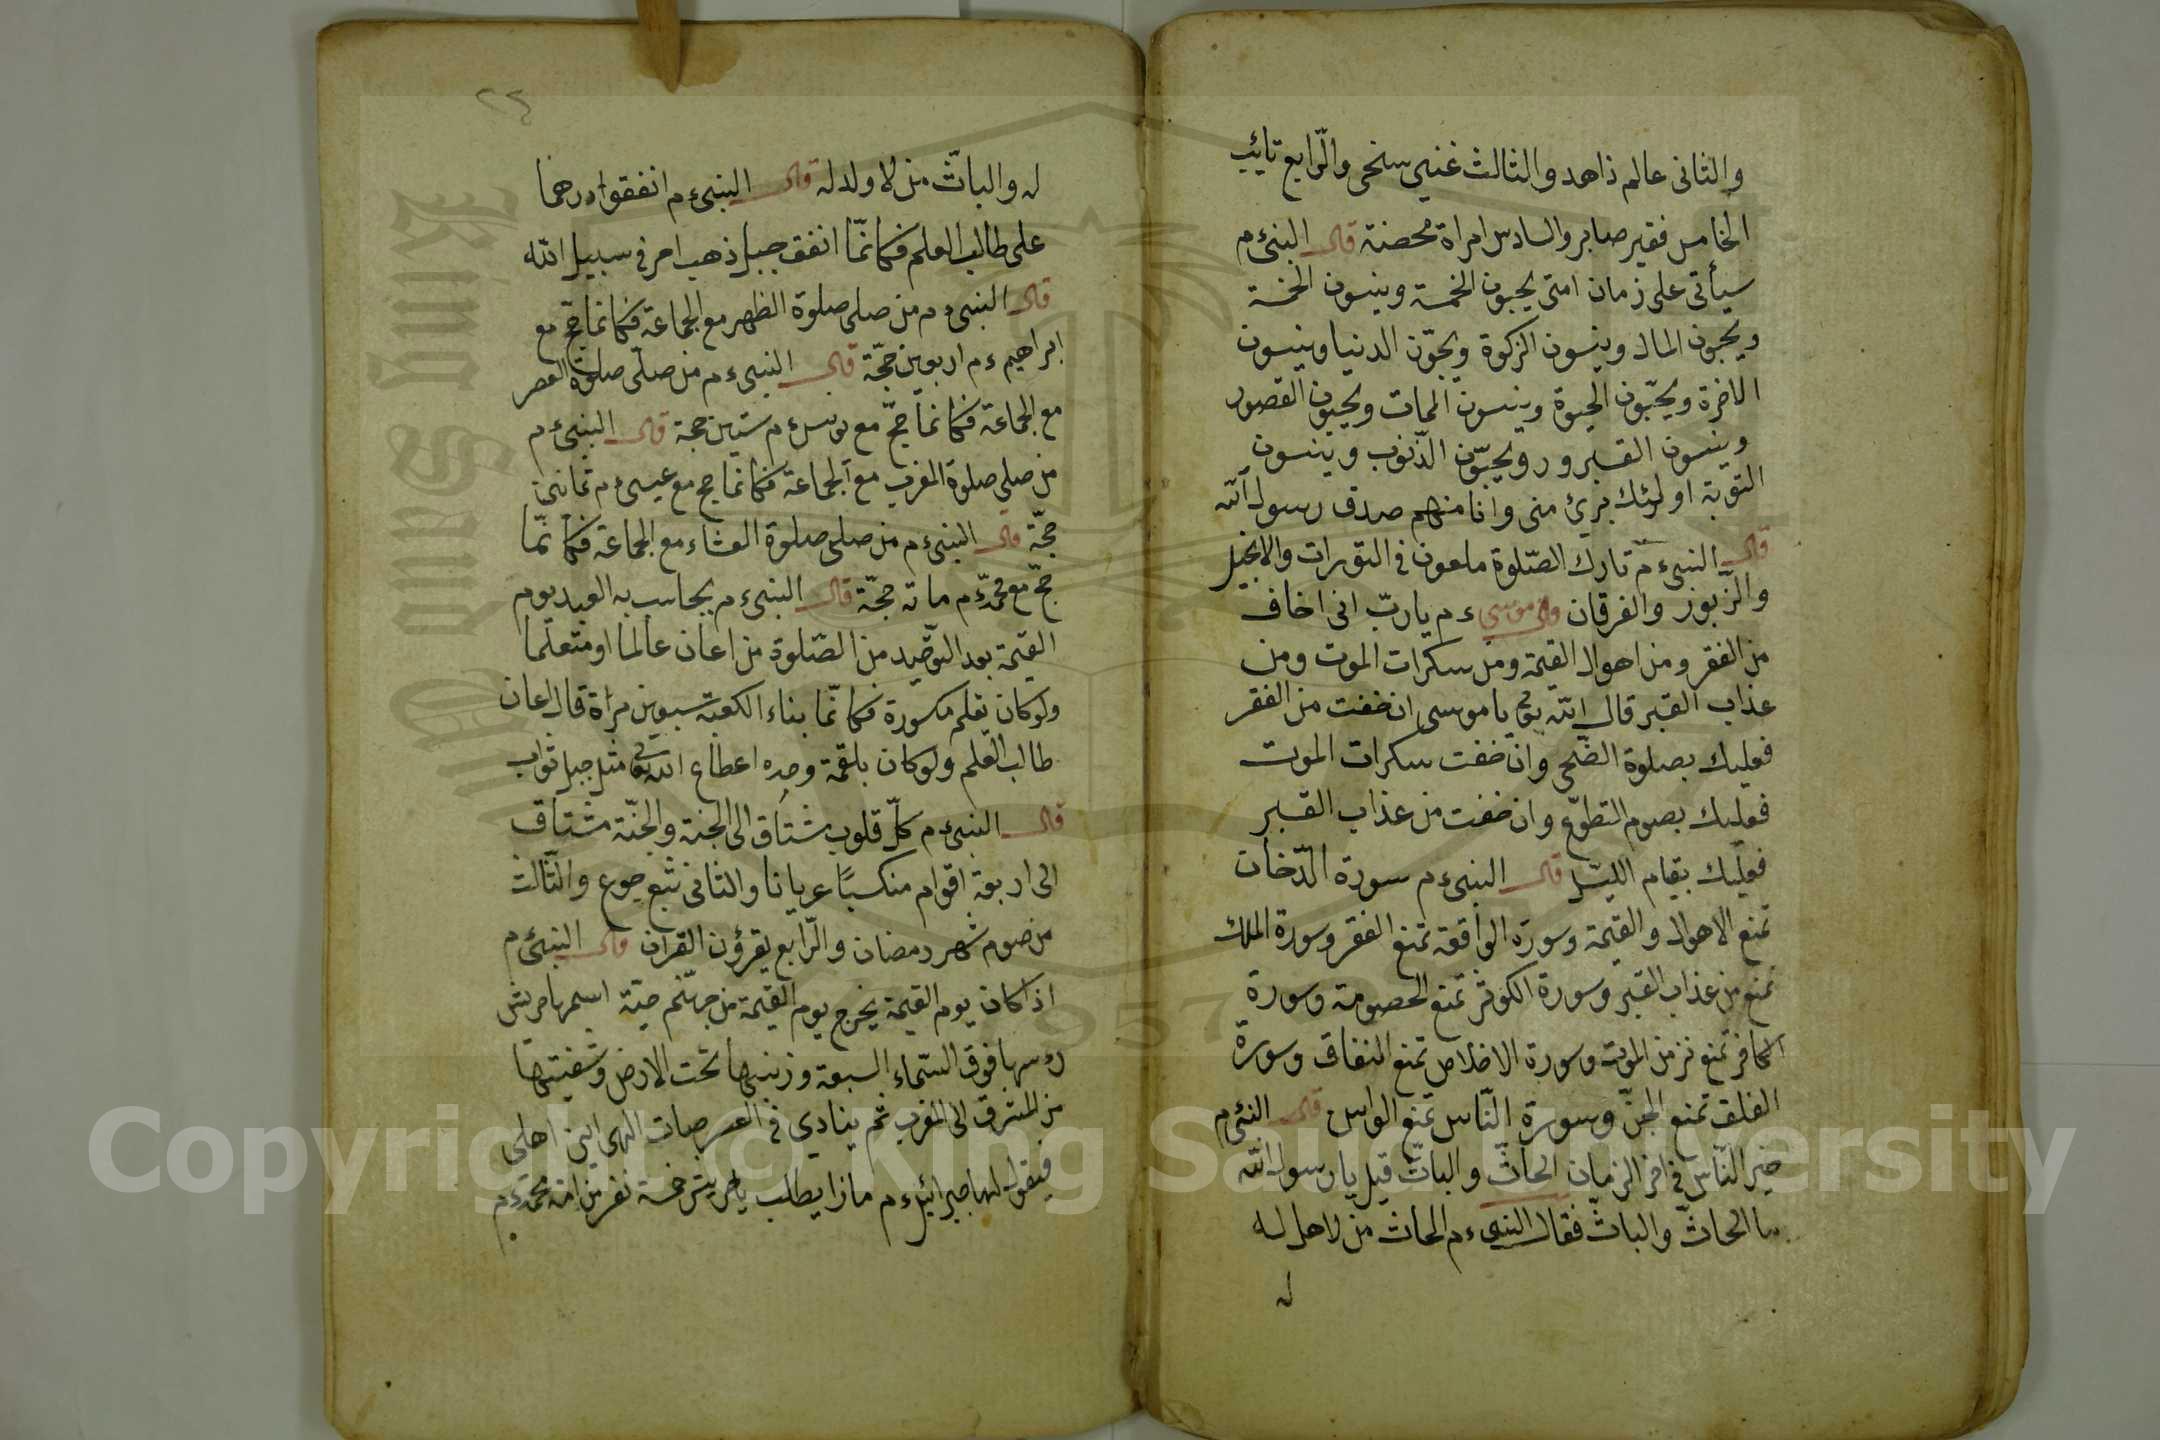 والثانى عالم ذاهد والثالث غنى سخى والرّابع تائب
الخامس فقير صابر والسادس امراة محصنة قال النبىء م
سيأتى على زمان امتى يحبون الخمسة وينسون الخمسة
ويحبون المال وينسون الزكوة ويحبّون الدنيا وينسون
الاخرة ويحبّون الحيوة وينسون الممات ويحبون القصور
وينسون القبرور ويحبّون الذّنوب وينسون
التوبة اولئك برئ منى وانا منهم صدق رسول الله
قال النبىء م تارك الصّلوة ملعون فى التورات والانجيل
والزّبور والفرقان قال موسى ء م يا ربّ انى اخاف
من الفقر ومن اهوال القيمة ومن سكرات الموت ومن
عذاب القبر قال الله تع يا موسى ان خفت من الفقر
فعليك بصلوة الضّحى وان خفت سكرات الموت
فعليك بصوم التطوّع وان خفت من عذاب القبر
فعليك بقيام الليل قال النبىء م سورة الدّخان
تمنع الاهوال والقيمة وسورة الواقعة تمنع الفقر وسورة الملك
تمنع من عذاب القبر وسورة الكوثر تمنع الخصومة وسورة
الكافر تمنع نزمن الموت وسورة الاخلاص تمنع النفاق وسورة
الفلق تمنع الجنّ وسورة النّاس تمنع الواس قال النبىء م
خير النّاس فى اخر الزمان الحاثّ والباثّ قيل يا رسول الله
ما الحاثّ والباثّ فقال النبىء م الحاث من لا هل له
له
٢٣
له والباثّ من لا ولد له قال النبىء م انفقوا درهما
على طالب العلم فكانّما انفق جبل ذهب احمر فى سبيل الله
قال النبىء م من صلى صلوة الظهر مع الجماعة فكانما حج مع
ابراهيم ء م اربعين حجّة قال النبىء م من صلّى صلوة العصر
مع الجماعة فكانما حجّ مع يونس ء م ستين حجة قال النبىء م
من صلى صلوة المغرب مع الجماعة فكانما حج مع عيسى ء م ثمانين
حجّة قال النبىء م من صلى صلوة العشاء مع الجماعة فكانّما
حجّ مع محمّد ء م مائه حجّة قال النبىء م يحاسب به العبد يوم
القيمة بعد التوحيد من الصّلوة من اعان عالما او متعلّما
ولو كان بقلم مكسورة فكانّما بناء الكعبة سبعين مرّاة قال اعان
طالب العلم ولو كان بلقمة وحده اعطاع الله تع مثل جبل ثواب
قال النبىء م كلّ قلوب مشتاق الى الجنة والجنّة مشتاق
الى اربعة اقوام منكسبًا عريانا والثانى شبع جوع والثّالث
من صوم شهر رمضان والرّابع يقرؤن القران قال النبىء م
اذا كان يوم القيمة يخرج يوم القيمة من جهنّم حيّة اسمها حريش
رءسها فوق السّماء السبعة وزنبها تحت الارض وشفيتها
من المشرق الى المغرب ثم ينادى فى العرصات الهى اين اهلى
فيقول لها جبرائيل ء م ماذا يطلب يا حريش خمسة نفر من امة محمّد ء م
Copyright © King Saud University
King Saud
1957